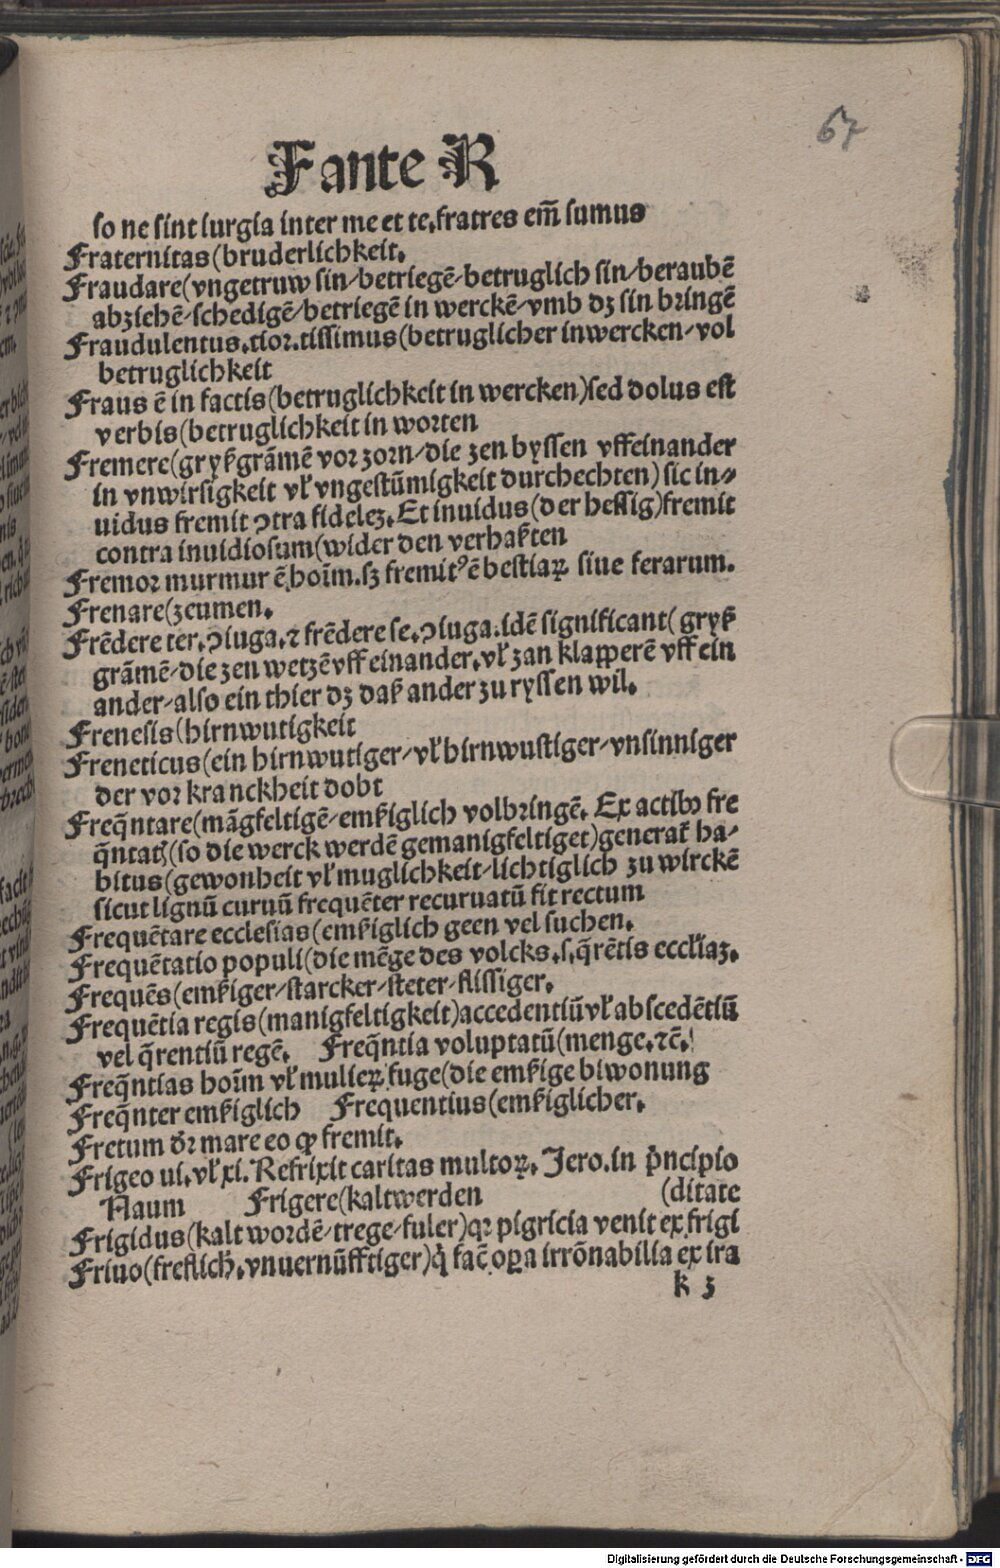 67
F ante R
so ne sint iurgia inter me et te. fratres em̄ sumus
Fraternitas (bruderlichkeit.
Fraudare (vngetruw sin/betriegē/betruglich sin/beraubē
abziehē/schedigē/betriegē in werckē/vmb dz sin bringē
Fraudulentus.tior.tissimus (betruglicher in wercken/vol
betruglichkeit
Fraus ē in factis (betruglichkeit in wercken) sed dolus est
verbis (betruglichkeit in worten
Fremere (gryßgrāmē vor zorn/die zen byssen vffeinander
in vnwirsigkeit vl̛ vngestūmigkeit durchechten) sic in⸗
uidus fremit ꝯtra fidelez. Et inuidus (der hessig) fremit
contra inuidiosum (wider den verhaßten
Fremor murmur ē hoīm. sz fremitꝰ ē bestiaꝝ siue ferarum.
Frenare (zeumen.
Frēdere ter.ꝯiuga.⁊ frēdere se.ꝯiuga.idē significant (gryß
grāmē/die zen wetzē vff einander.vl̛ zan klapperē vff ein
ander/also ein thier dz daß ander zu ryssen wil.
Frenesis (hirnwutigkeit
Freneticus (ein hirnwutiger/vl̛ hirnwustiger/vnsinniger
der vor kranckheit dobt
Freq̄ntare (māgfeltigē/emßiglich volbringē. Ex actibꝰ fre
q̄ntatꝭ (so die werck werdē gemanigfeltiget) generat̛ ha⸗
bitus (gewonheit vl̛ muglichkeit/lichtiglich zu wirckē
sicut lignū curuū frequēter recuruatū fit rectum
Frequētare ecclesias (emßiglich geen vel suchen.
Frequētatio populi (die mēge des volcks.s.q̄rētis eccl̛iaz.
Frequēs (emßiger/starcker/steter/flissiger.
Frequētia regis (manigfeltigkeit) accedentiū vl̛ abscedētiū
vel q̄rentiū regē. Freq̄ntia voluptatū (menge.⁊c̄.
Freq̄ntias hoīm vl̛ mulieꝝ fuge (die emßige biwonung
Freq̄nter emßiglich Frequentius (emßiglicher.
Fretum dr̄ mare eo ꝙ fremit.
Frigeo ui.vl̛ xi. Refrixit caritas multoꝝ. Jero. in p̄ncipio
Naum Frigere (kalt werden (ditate
Frigidus (kalt wordē/trege/fuler) qꝛ pigricia venit ex frigi
Friuo (freflich.vnuernūfftiger) q̇ fac̄ oꝑa irrōnabilia ex ira
k 3
Digitalisierung gefördert durch die Deutsche Forschungsgemeinschaft - DFG